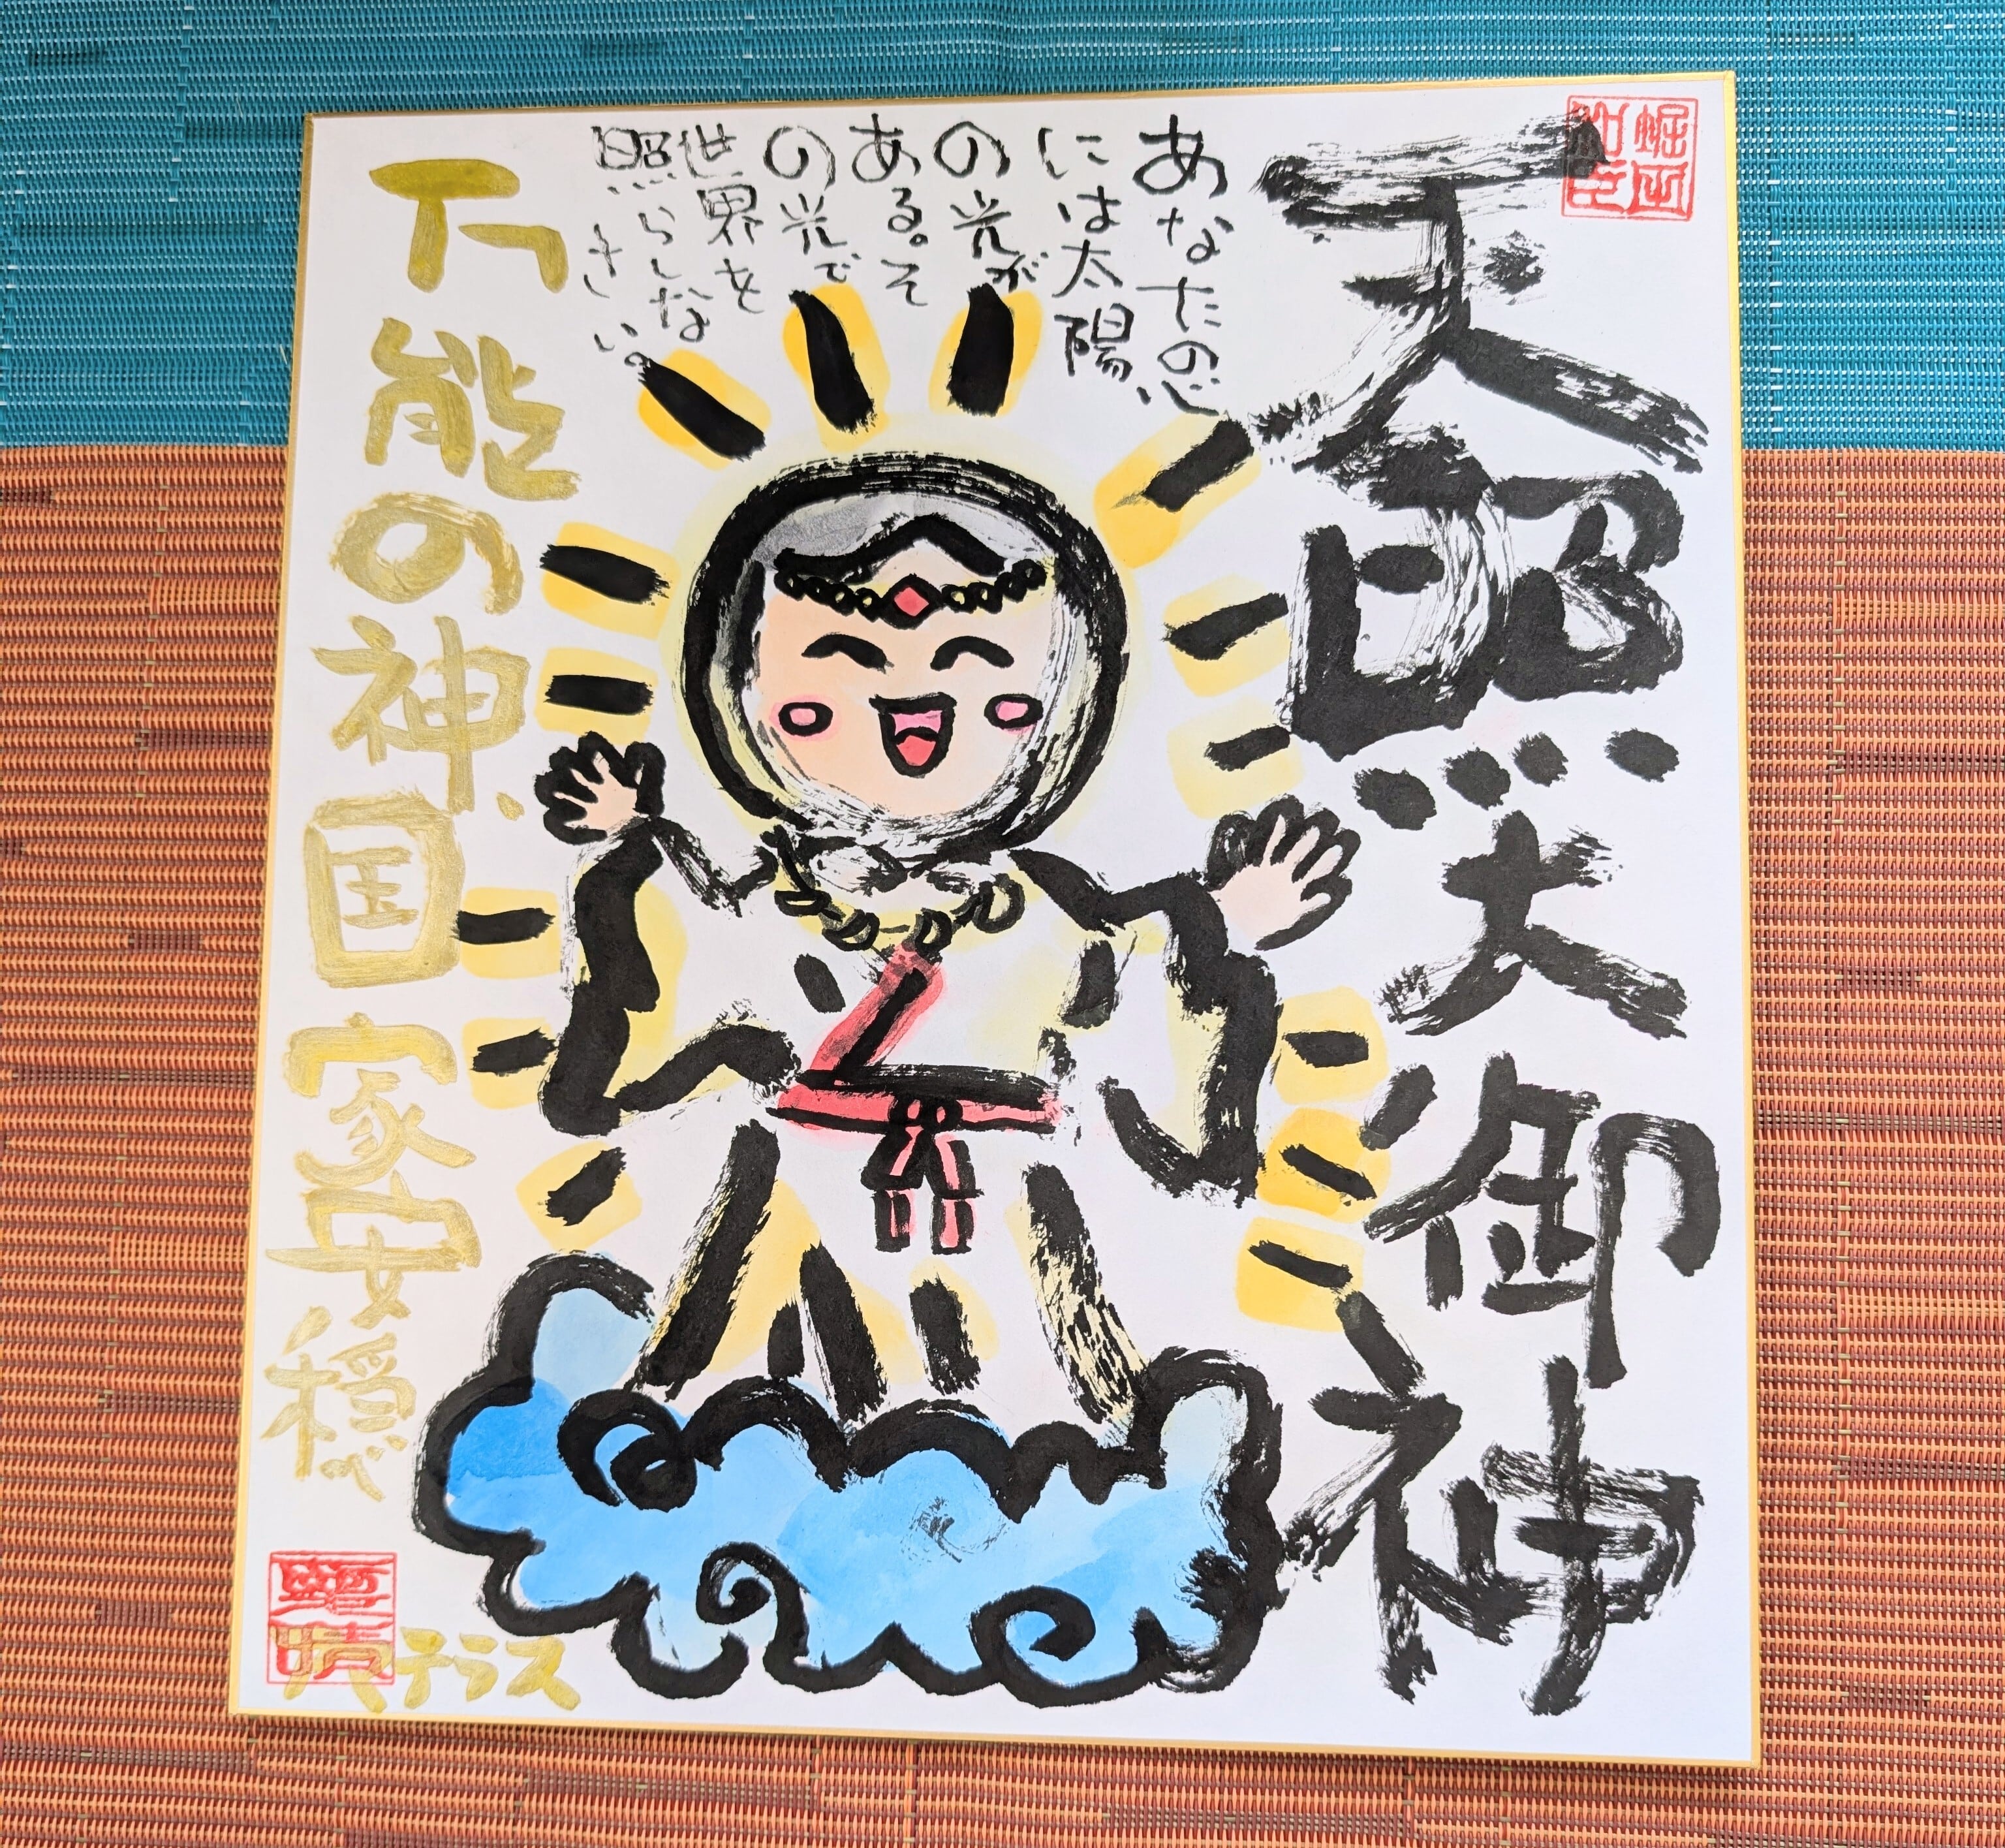 天照大御神
あなたの心
には太陽
の光が
ある。そ
の光で
世界を
照らしな
さい。
万能の神、国家安穏
テラス